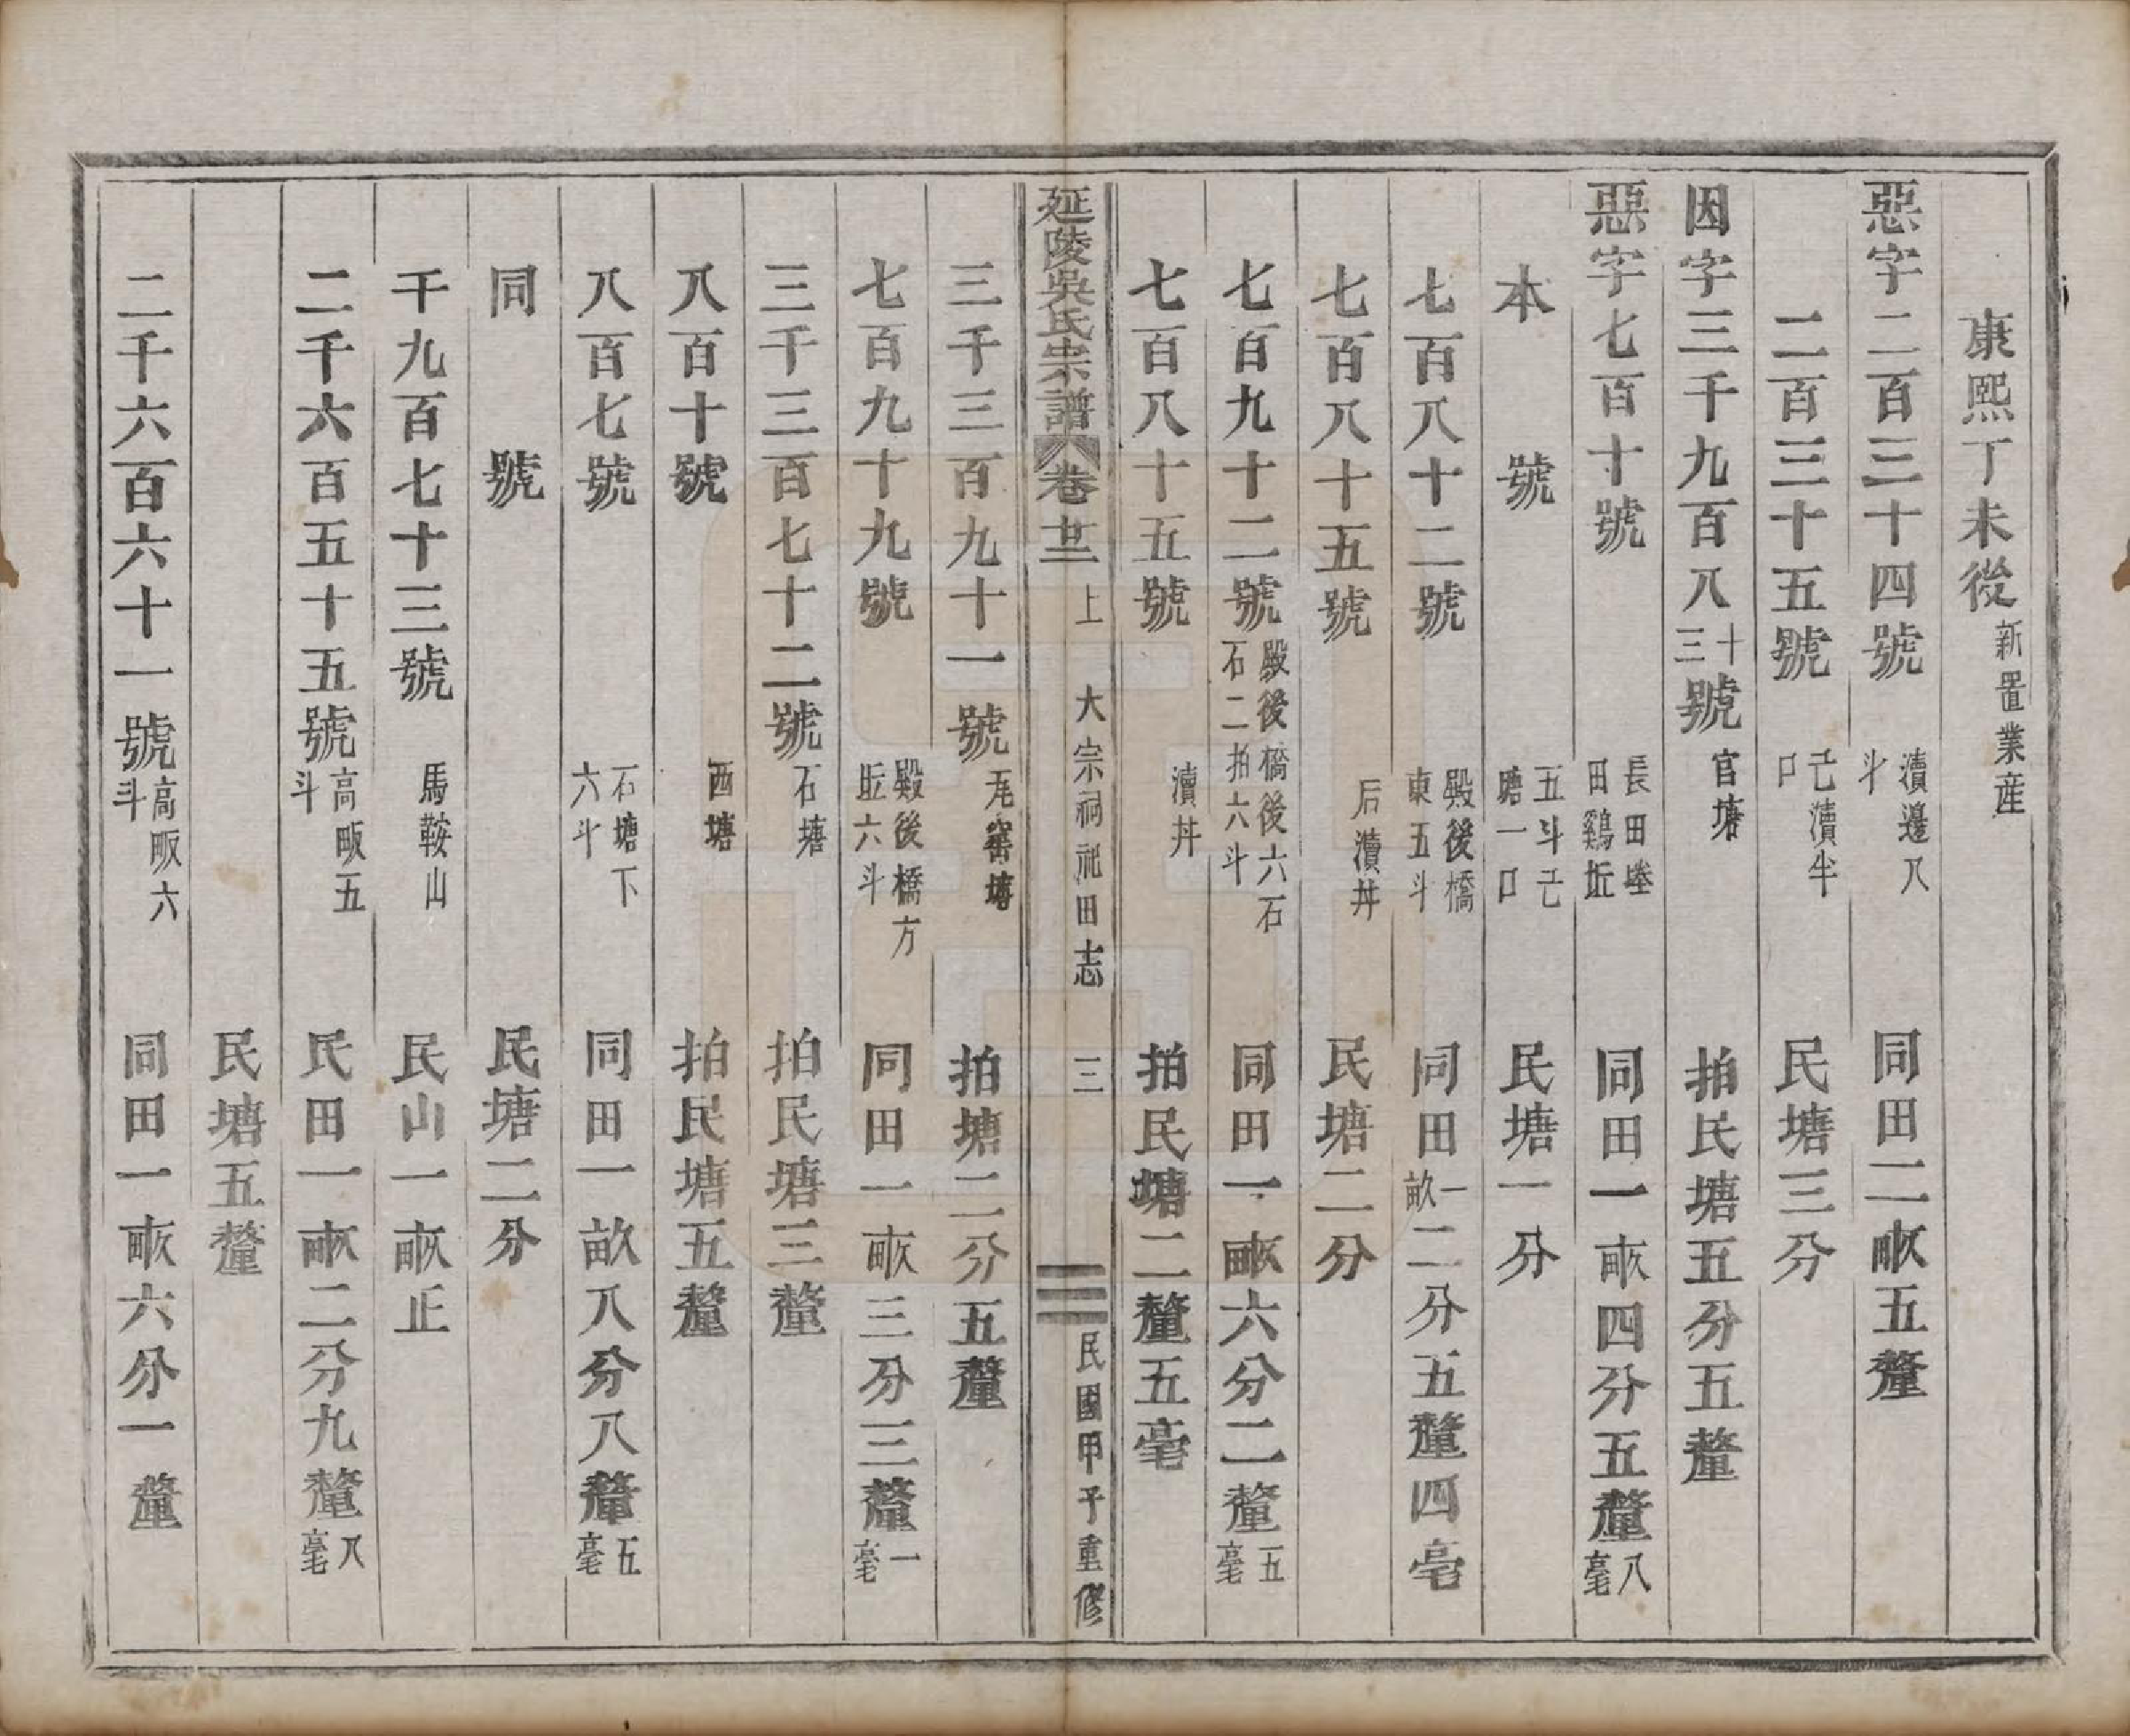 康熙丁未後新置業産
惡字二百三十四號瀆邊八斗同田二畝五釐
二百三十五號己瀆半口民塘三分
因字三千九百八十三號官塘拍民塘五分五釐
惡字七百十號長田塍田鷄坵同田一畝四分五釐八毫
本號五斗己塘一口民塘一分
七百八十二號殿後橋東五斗同田一畝二分五釐四毫
七百八十五號后瀆丼民塘二分
七百九十二號殿後橋後六石石二拍六斗同田一畝六分二釐五毫
七百八十五號瀆丼拍民塘二釐五毫
延陵吳氏宗譜卷廿二上大宗祠祀田志三民國甲子重修
三千三百九十一號瓦窰塘拍塘二分五釐
七百九十九號殿後橋方坵六斗同田一畝三分三釐一毫
三千三百七十二號石塘拍民塘三釐
八百十號西塘拍民塘五釐
八百七號石塘下六斗同田一畝八分八釐五毫
同號民塘二分
千九百七十三號馬鞍山民山一畝正
二千六百五十五號高畈五斗民田一畝二分九釐八毫
民塘五釐
二千六百六十一號高畈六斗同田一畝六分一釐